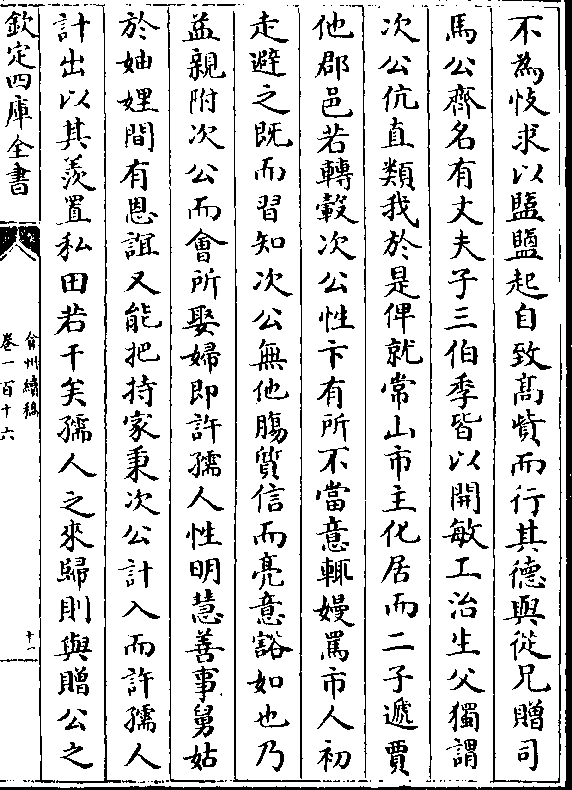 不為忮求以鹽鹽起自致髙貲而行其德與從兄贈司
馬公齊名有丈夫子三伯季皆以開敏工治生父獨謂
次公伉直類我於是俾就常山市主化居而二子遞賈
他郡邑若轉轂次公性卞有所不當意輒嫚罵市人初
走避之既而習知次公無他膓質信而亮意豁如也乃
益親附次公而會所娶婦即許孺人性明慧善事舅姑
於妯娌間有恩誼又能把持家秉次公計入而許孺人
計出以其羨置私田若干矣孺人之來歸則與贈公之
欽定四庫全書
弇州續稿
卷一百十六
十一